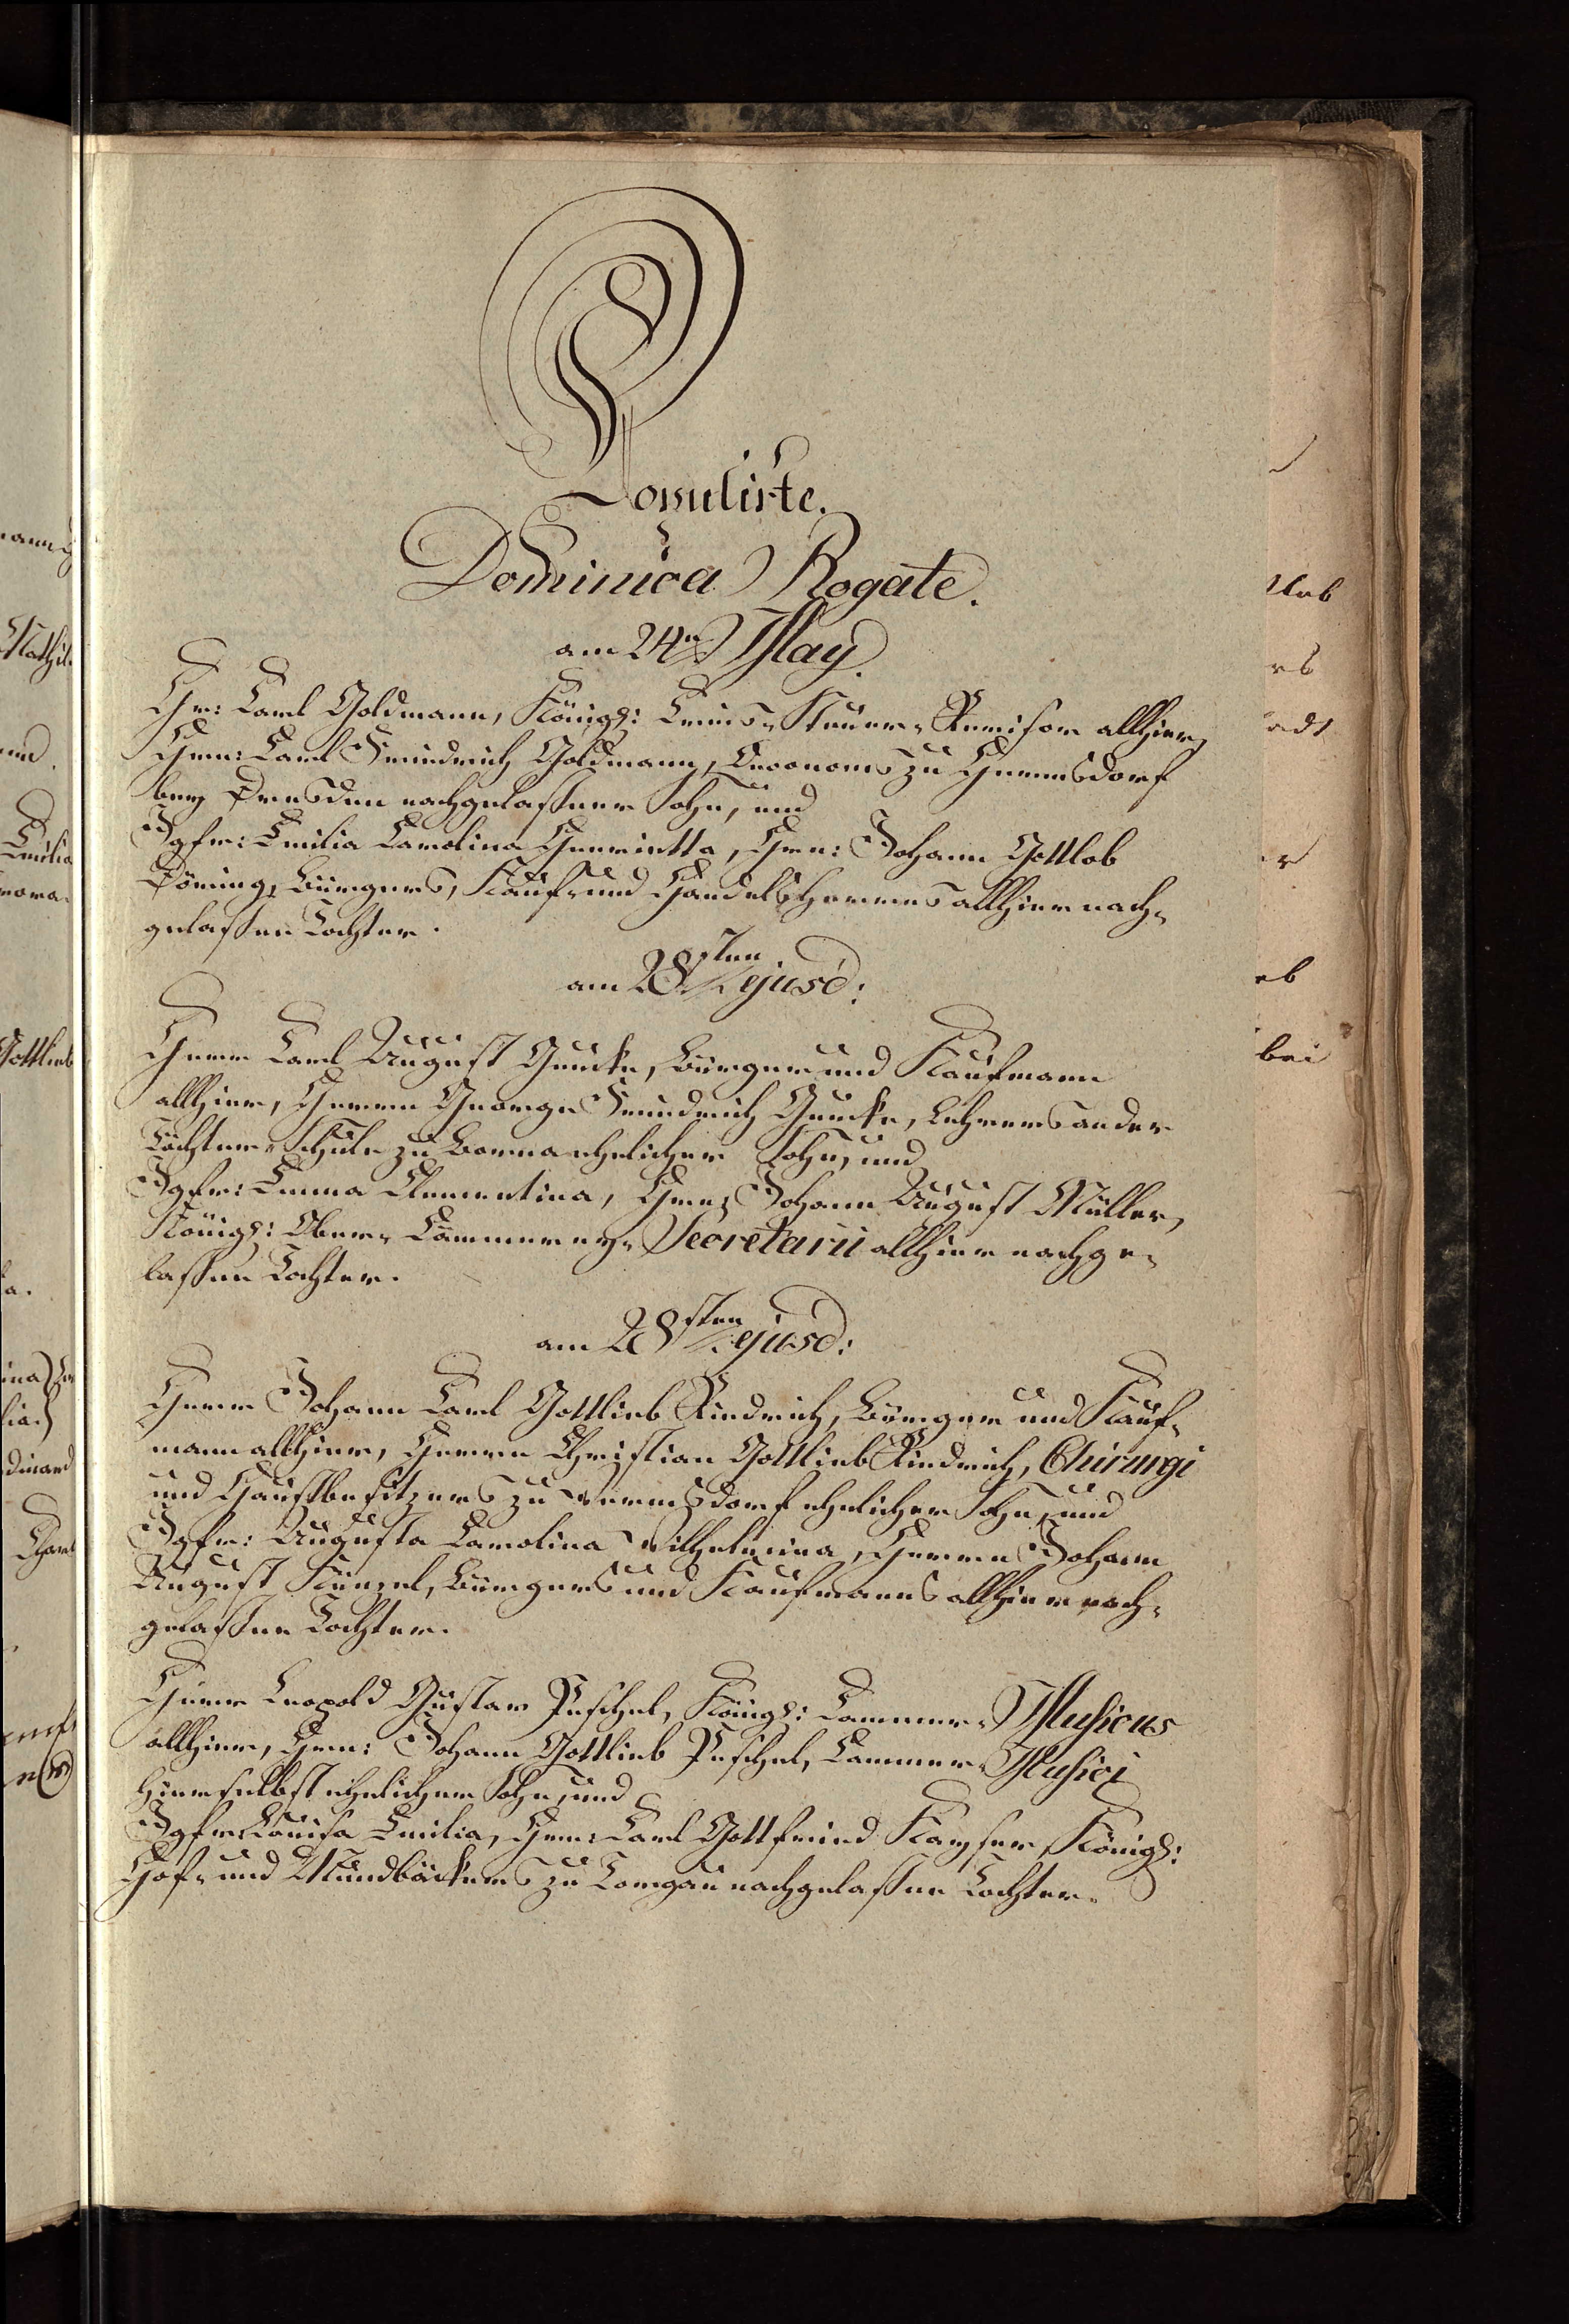 Copulirte.
Dominica Rogate.
am 24n May.
Hr: Carl Goldmann, Königl: Creis-Steuer-Revisor allhier,
Hrn: Carl Friedrich Goldmann, Oeconoms zu Hermsdorf
bey Dresden nachgelaßener Sohn, und
Jgfr: Emilia Carolina Henrietta, Hrn: Johann Gottlob
Döring, Bürgers, Kauf- und Handelsherrens allhier nach-
gelaßene Tochter.
am 28sten ejusd:
Herr Carl August Guicke, Bürger und Kaufmann
allhier, Herrn George Friedrich Guicke, Lehrers an der
Töchter-Schule zu Borna ehelicher Sohn, und
Jgfr: Emma Clementina, Hrn: Johann August Müller,
Königl: Ober-Cämmerey-Secretarii allhier nachge-
laßene Tochter.
am 28sten ejusd:
Herr Johann Carl Gottlieb Riedrich, Bürger und Kauf-
mann allhier, Herrn Christian Gottlieb Riedrich, Chirurgi
und Hausbesitzers zu Wermsdorf ehelicher Sohn, und
Jgfr: Augusta Carolina Wilhelmina, Herrn Johann
August Künzel, Bürgers und Kaufmanns allhier nach-
gelaßene Tochter.
Herr Leopold Gustav Peschel, Königl: Cammer-Musicus
allhier, Hrn: Johann Gottlieb Peschel, Cammer-Musici
hierselbst ehelicher Sohn, und
Jgfr: Louisa Emilia, Hrn: Carl Gottfried Kayser, Königl:
Hof- und Mundbäckers zu Torgau nachgelaßene Tochter.